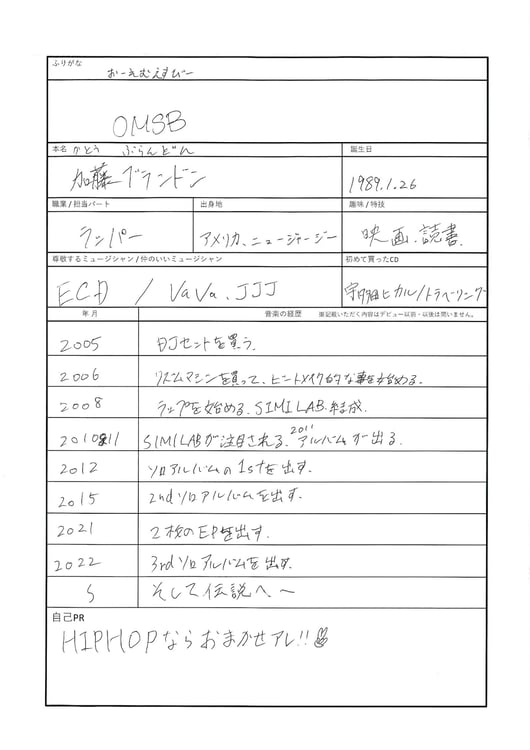 ふりがな
おーえむえすびー
OMSB
本名 かとう ぶらんどん
誕生日
加藤ブランドン
1989.1.26
職業 / 担当パート
出身地
趣味 / 特技
ラッパー
アメリカ、ニュージャージー
映画.読書.
尊敬するミュージシャン / 仲のいいミュージシャン
初めて買ったCD
ECD / VaVa、JJJ
宇多田ヒカル/トラベリング
年月
音楽の経歴 ※記載いただく内容はデビュー以前・以後は問いません。
2005
DJセットを買う.
2006
リズムマシンを買って、ビートメイク的な事を始める.
2008
ラップを始める、SIMI LAB.結成.
2010
11
2011
SIMI LABが注目される、アルバムが出る.
2012
ソロアルバムの1stを出す.
2015
2ndソロアルバムを出す.
2021
2枚のEPを出す.
2022
3rdソロアルバムを出す.
そして伝説へ〜
自己PR
HIPHOPならおまかせアレ!!